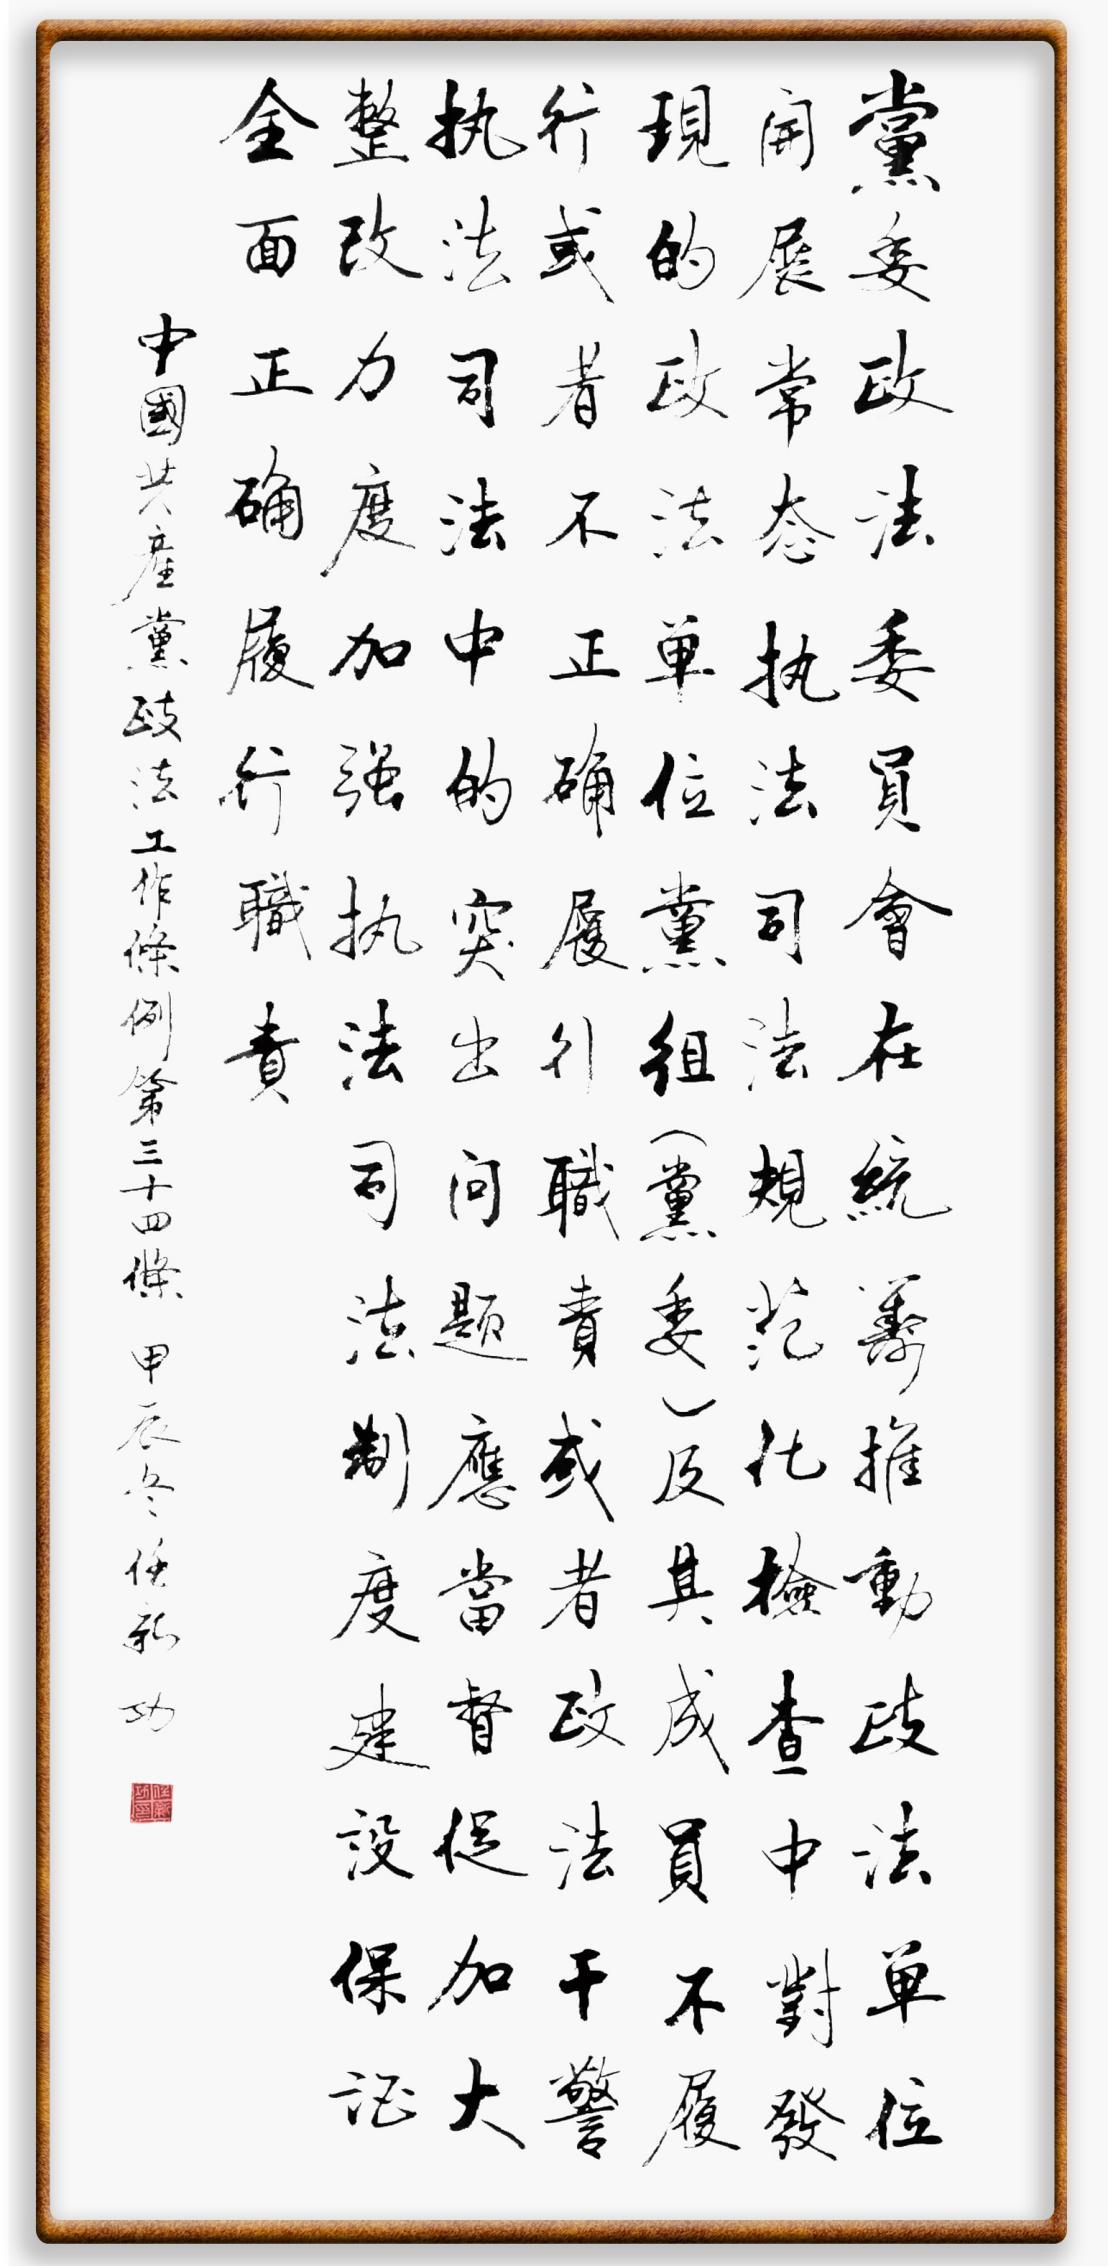 黨委政法委員會在統籌推動政法單位
開展常态执法司法規范化檢查中對發
現的政法单位黨組(黨委)及其成員不履
行或者不正确履行職責或者政法干警
执法司法中的突出问题應當督促加大
整改力度加强执法司法制度建設保证
全面正确履行職責
中國共産黨政法工作條例第三十四條 甲辰冬任新功